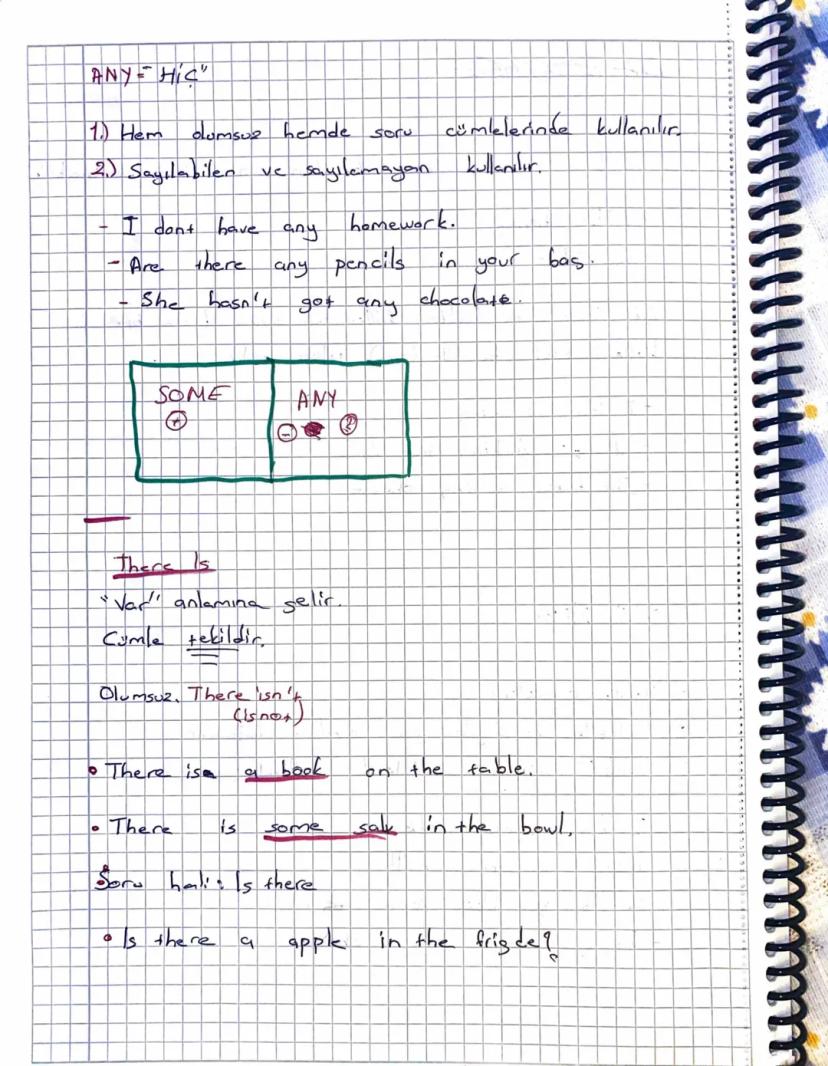 ANY = "Hiç"
1.) Hem olumsuz hemde soru cümlelerinde kullanılır.
2.) Sayılabilen ve sayılamayan kullanılır.
- I dont have any homework.
- Are there any pencils in your bag.
- She hasn't got any chocolate.
SOME ANY
+ - ?
There Is
"Var" anlamına gelir.
Cümle tekildir.
Olumsuz. There isn't
(Is not)
• There is a book on the table.
• There is some salt in the bowl.
Soru hali: Is there
• Is there a apple in the frigde?